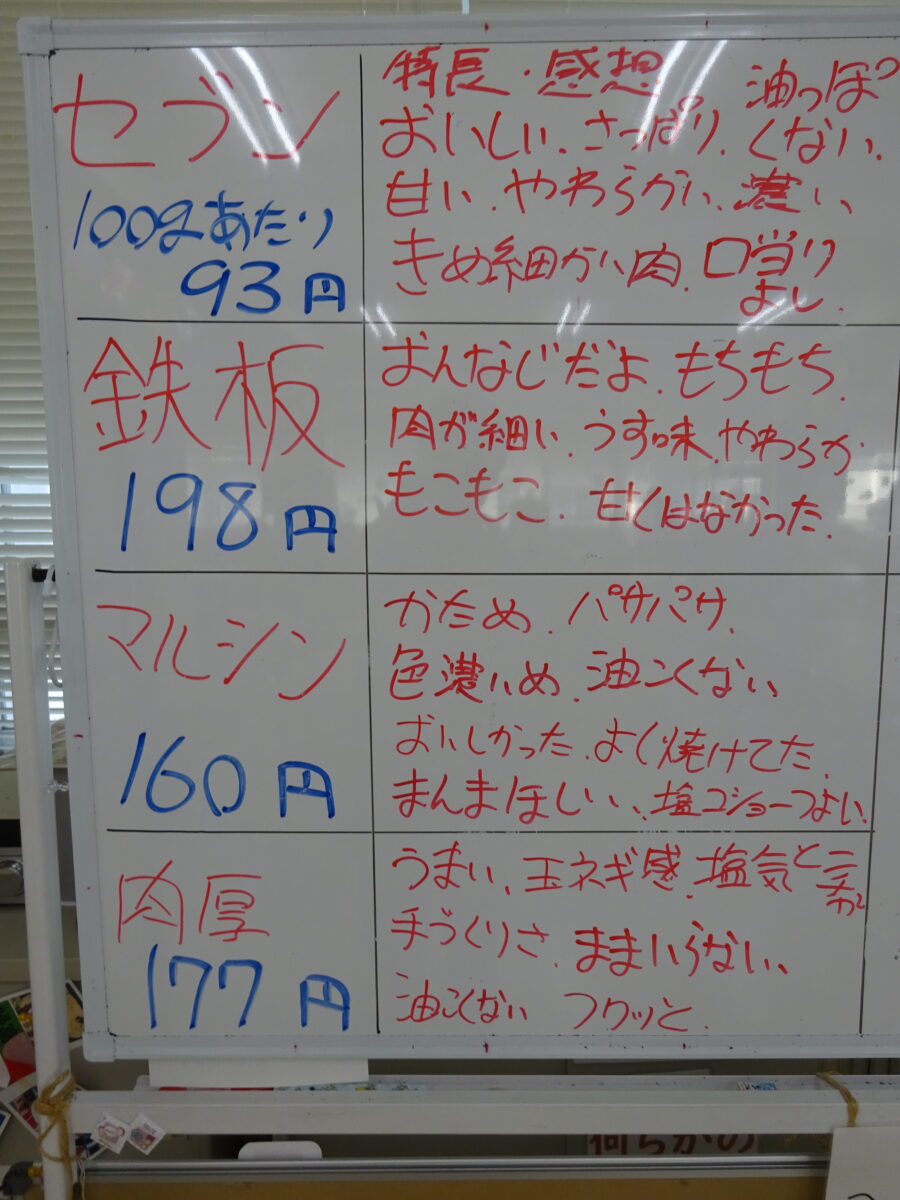 セブン
100gあたり
93円
特長・感想
おいしい、さっぱり、油っぽくない、
甘い、やわらかい、濃い、
きめ細かい肉、口当りよし、
鉄板
198円
おんなじだよ、もちもち、
肉が細い、うす味、やわらか
もこもこ、甘くはなかった、
マルシン
160円
かため、パサパサ、
色濃いめ、油こくない
おいしかった、よく焼けてた、
まんまほしい、塩コショーつよい、
肉厚
177円
うまい、玉ネギ感、塩気と
手づくりさ、ままいらない、
油こくない フクッと、